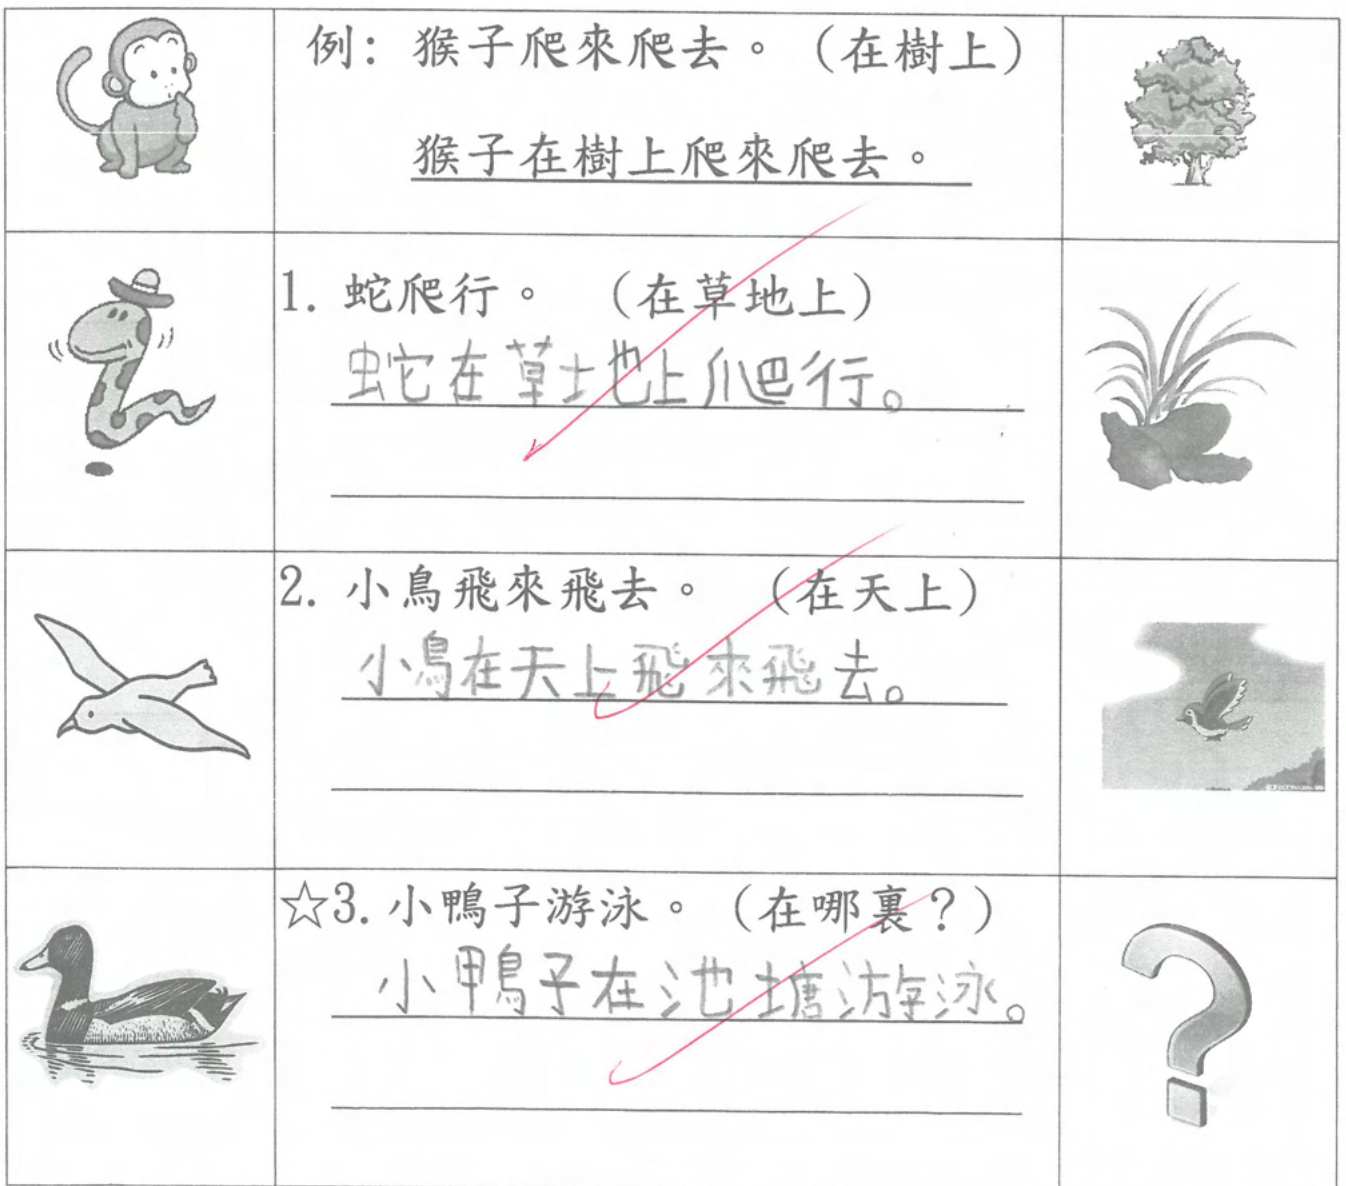 例：猴子爬來爬去。（在樹上）
猴子在樹上爬來爬去。
1. 蛇爬行。（在草地上）
蛇在草地上爬行。
2. 小鳥飛來飛去。（在天上）
小鳥在天上飛來飛去。
☆3. 小鴨子游泳。（在哪裏？）
小鴨子在池塘游泳。